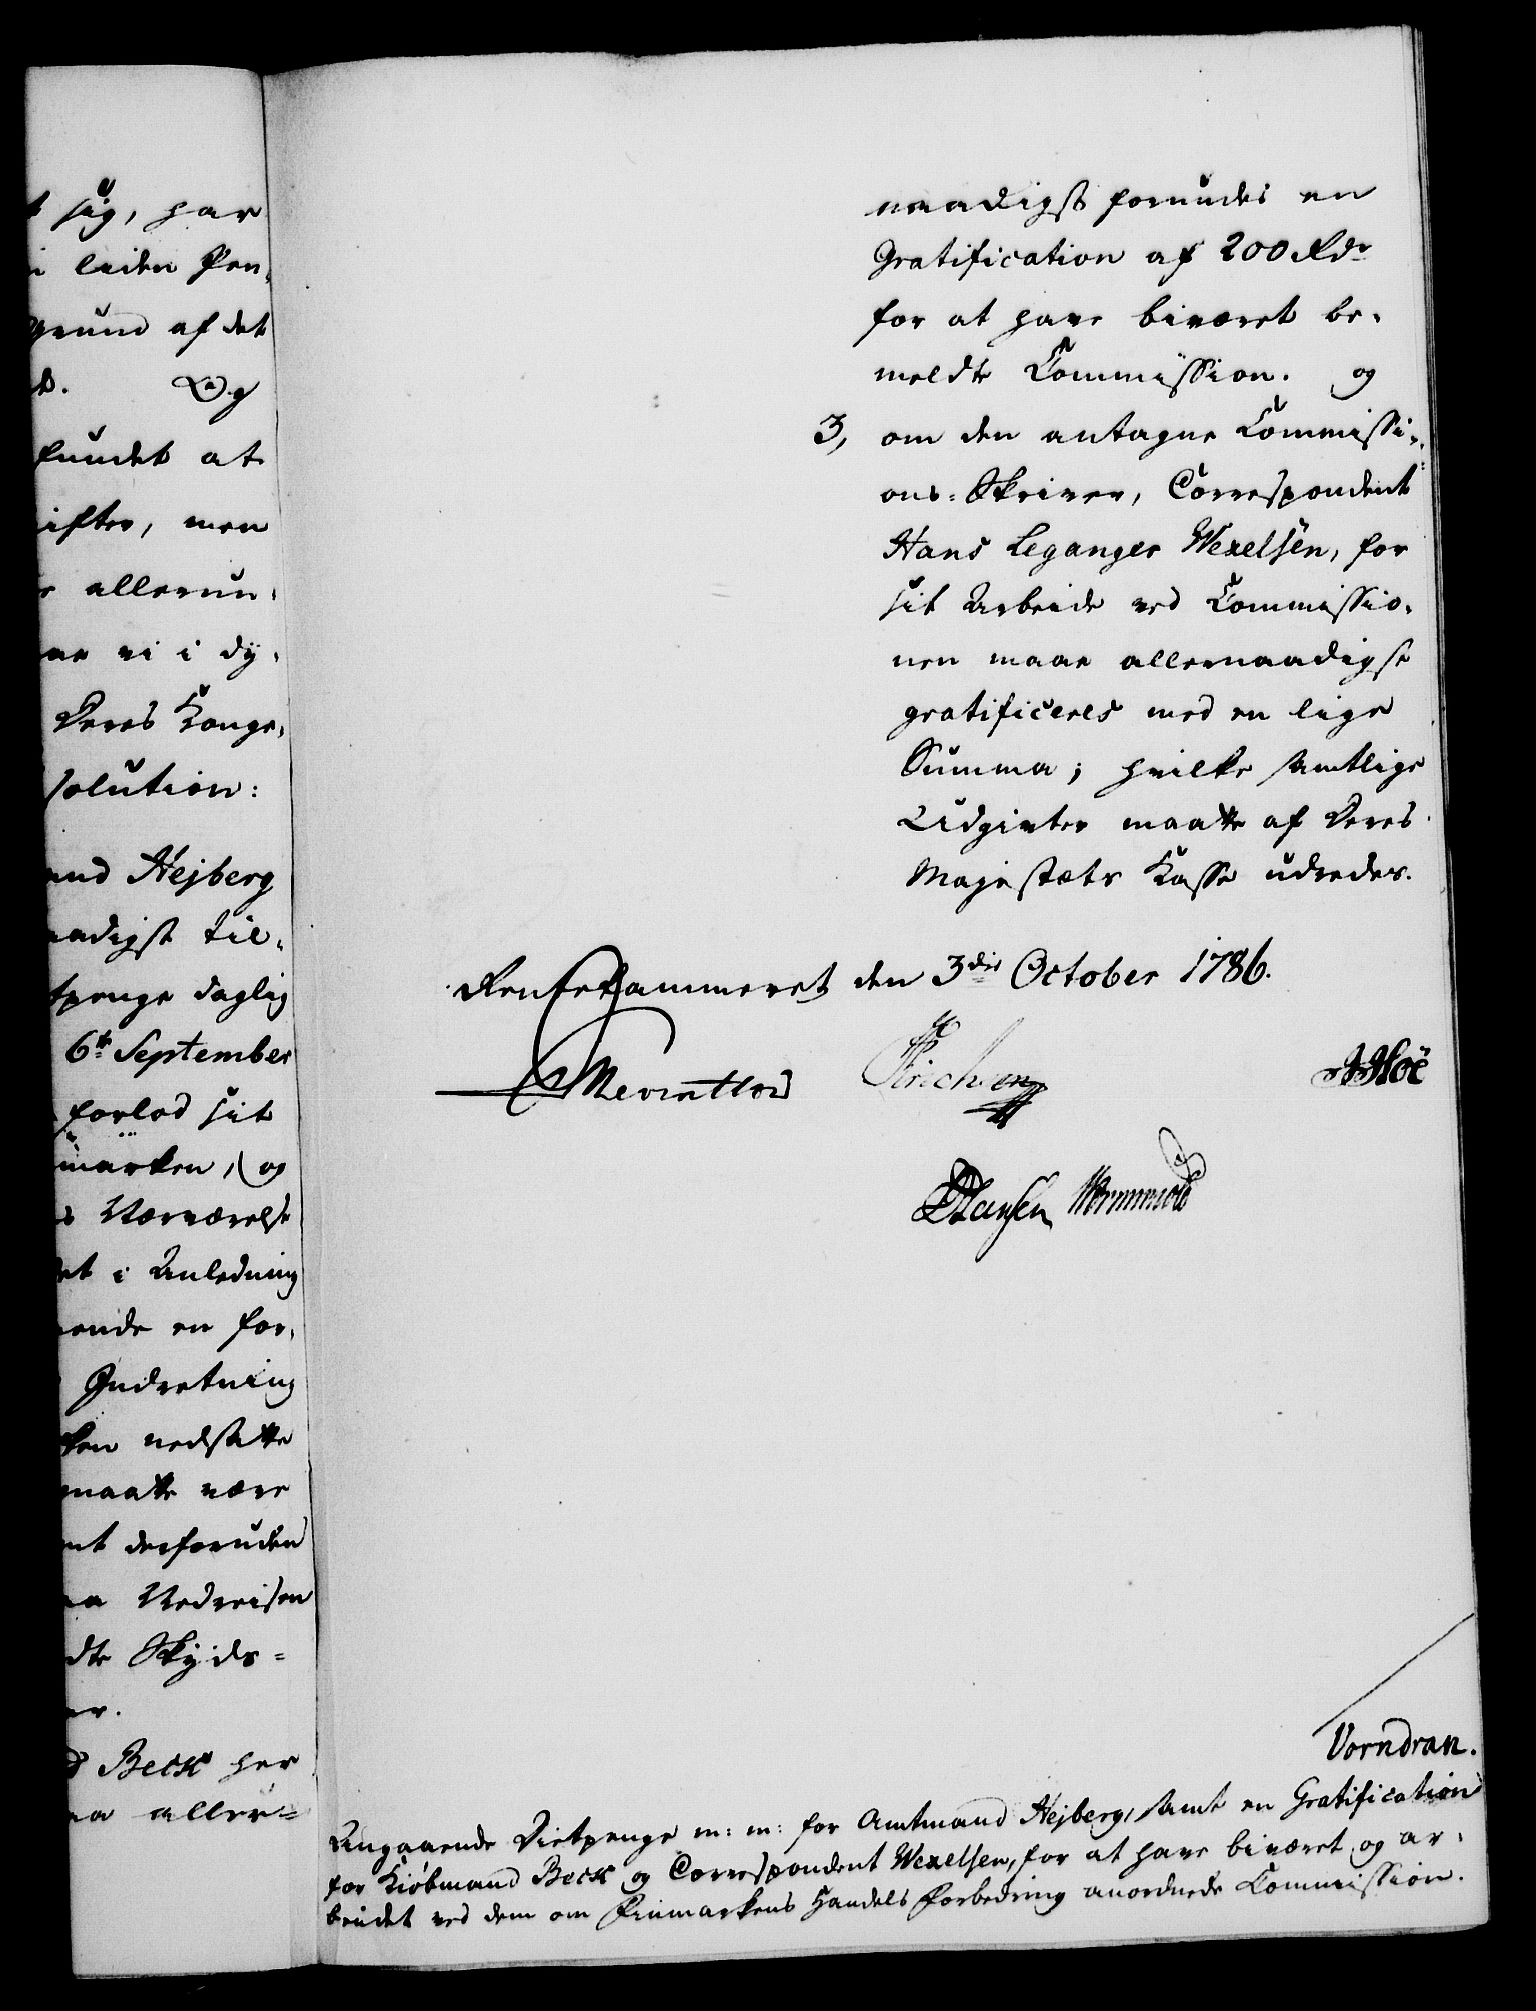 t sig, har
i liden Pen,
grund af det
d. Og
fundet at
ifter, men
e allerun,
ne vi i dÿ,
Deres Konge,
solution:
and Hejberg
aadigst til,
tpenge daglig
6te September
forlod sit
marken, og
s Nærværelse
et i Anledning
ende en for,
Indretning
ken nedsatte
maatte være
nt desforuden
aa Nedreisen
dte Skyds-
er.
d Beck her
aa aller-
naadigst forundes en
Gratification af 200 Rdr
for at have biværet be,
meldte Commission. og
3, om den antagne Commissi-
ons-Skriver, Correspondent
Hans Leganger Wexelsen, for
sit Arbeide ved Commissio,
nen maae allernaadigst
gratificeres med en lige
Summa; hvilke samtlige
Udgivter maatte af Deres
Majestæts Kasse udredes.
Rentekammeret den 3die October 1786.
Reventlow Erichsen Hoë
Hansen Wormskiold
Vorndran.
Angaaende Dietpenge m: m: for Amtmand Hejberg, samt en Gratification
for Kiøbmand Beck og Correspondent Wexelsen, for at have biværet og ar,
beidet ved dem om Finmarkens Handels Forbedring anordnede Commission.